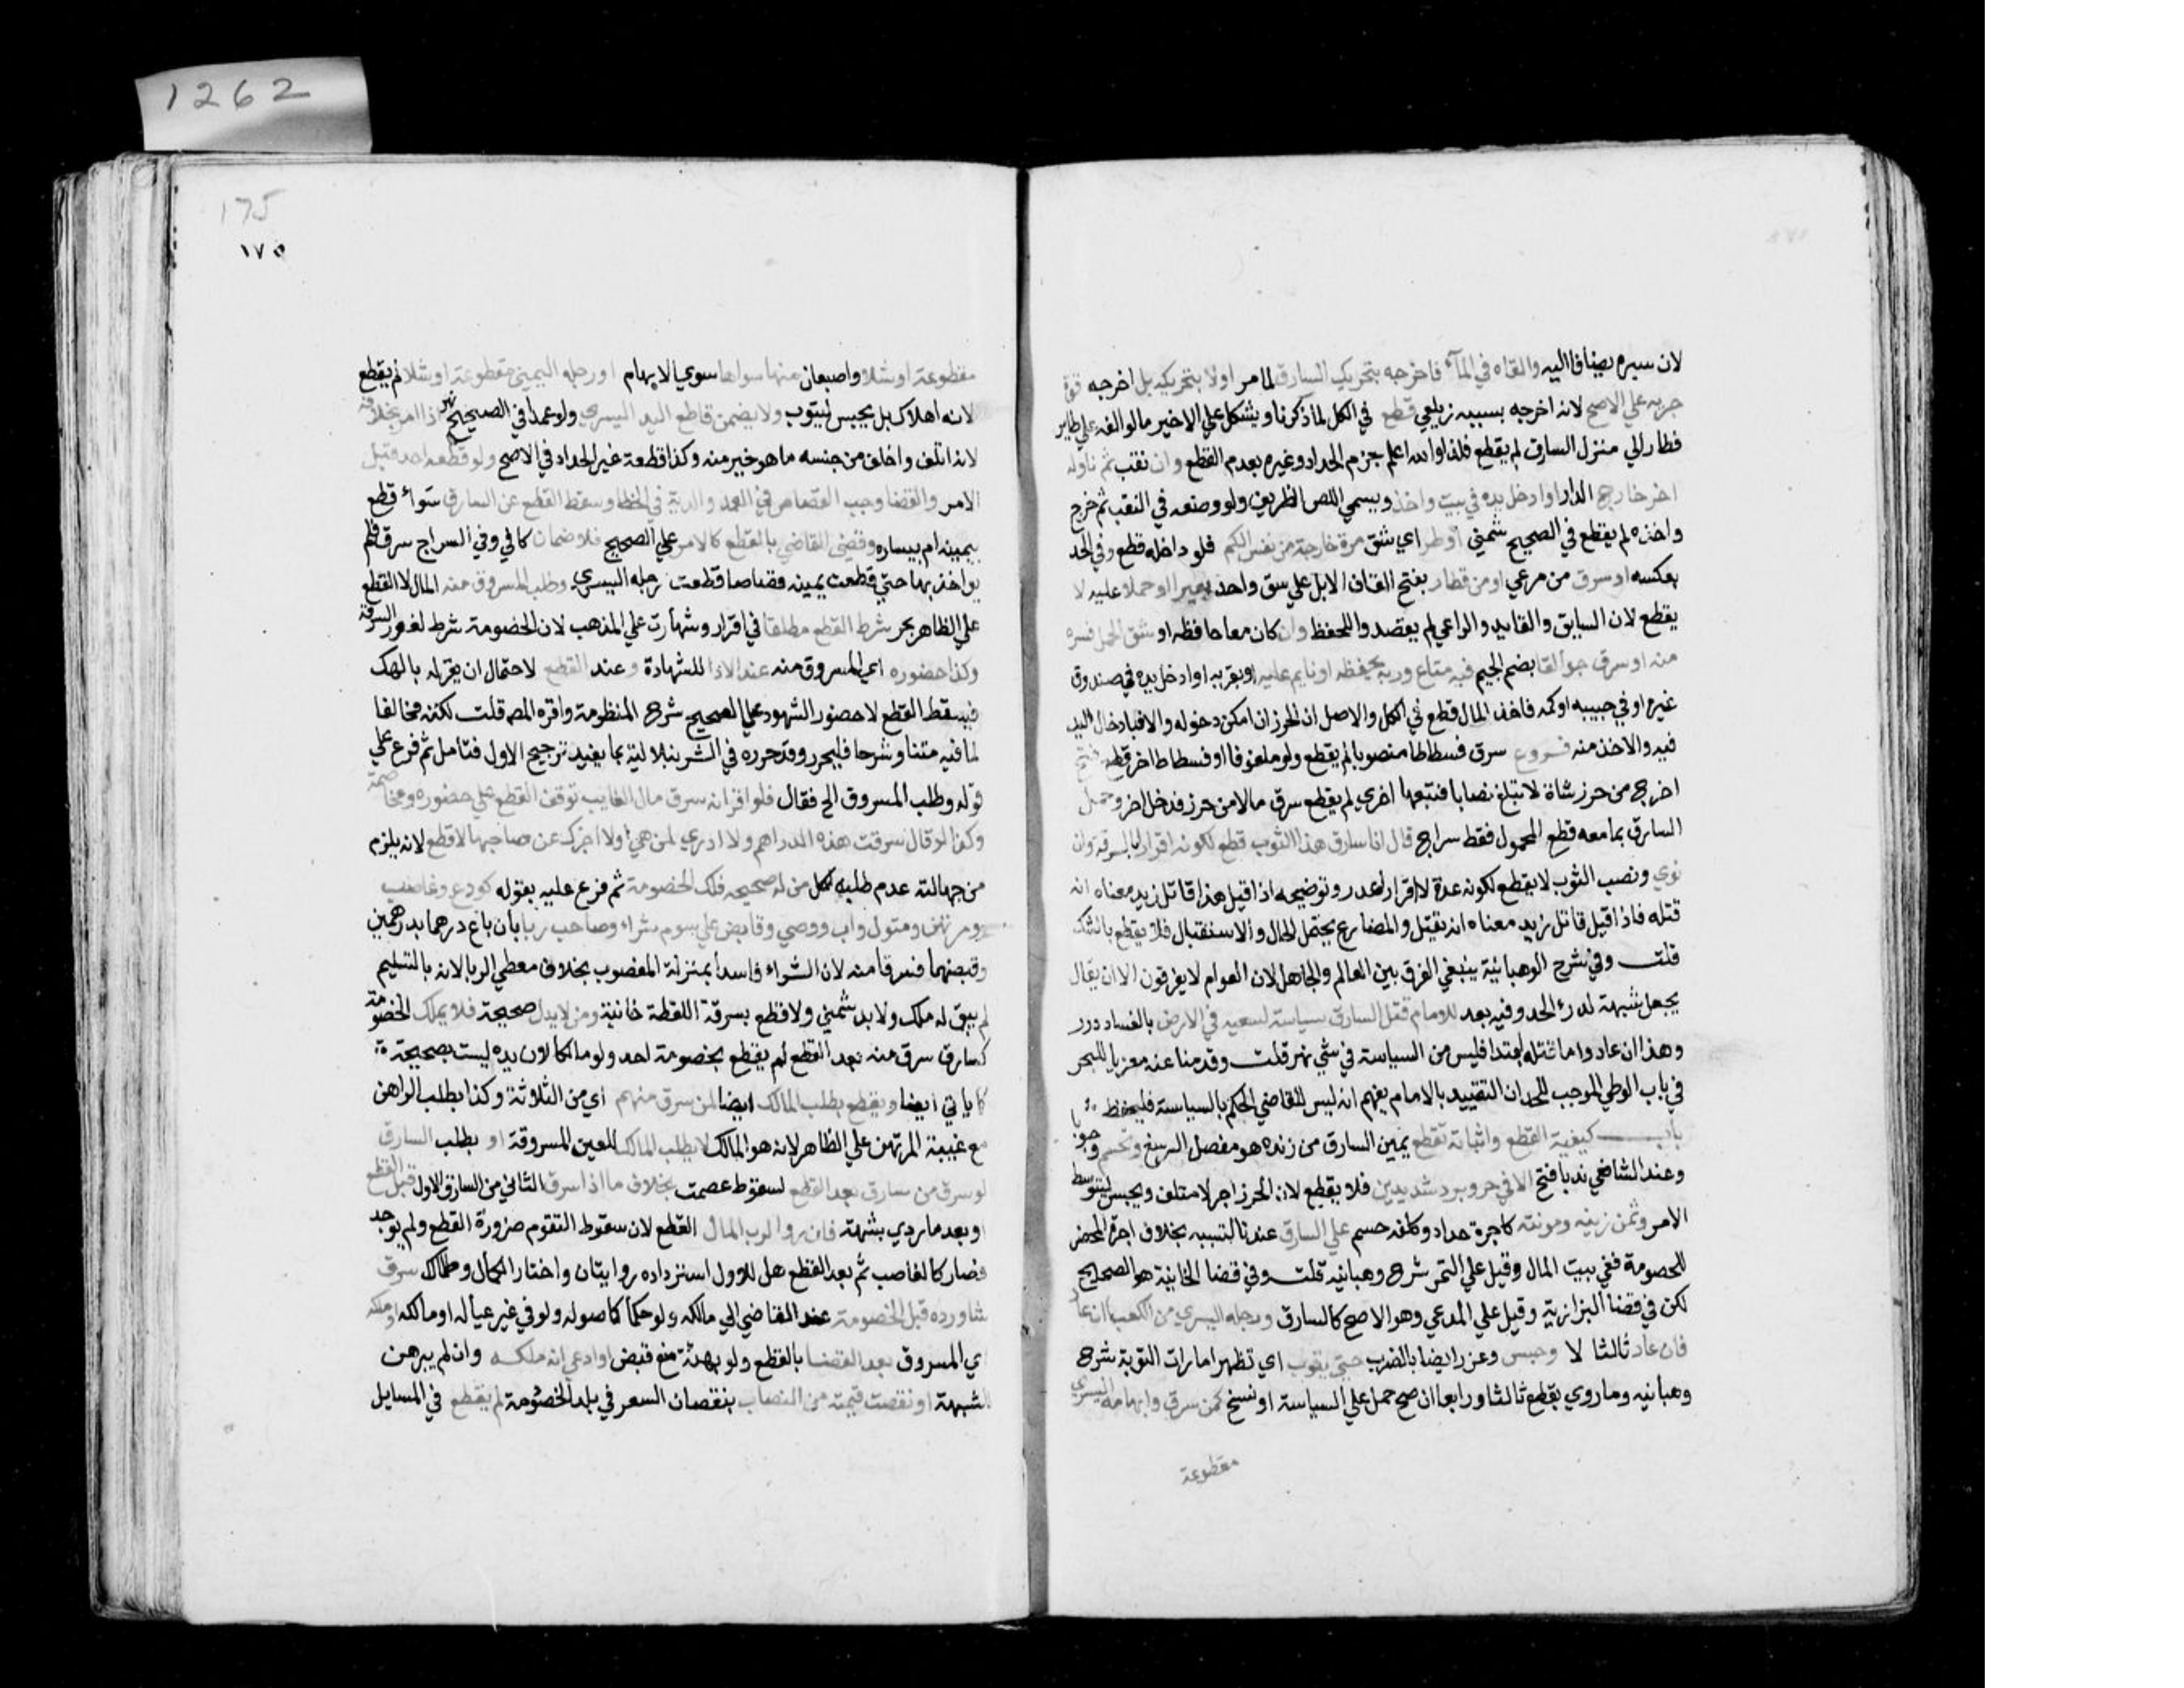 1262
لان سيره يضاف اليه والقاه في المآء فاخرجه بتحريك السارق لما مر اولا بتحريكه بل اخرجه قوة
جريه علي الاصح لانه اخرجه بسببه زيلعي قطع في الكل لما ذكرنا ويشكل علي الاخير ما لو الفه علي طاير
فطار الي منزل السارق لم يقطع فلذا والله اعلم جزم الحدادي وغيره بعدم القطع وان نقب ثم ناوله
اخر خارج الدار او ادخل يده في بيت واخذ ويسمي اللص الظريف ولو وضعه في النقب ثم خرج
واخذه لم يقطع في الصحيح شمني او طر اي شق صرة خارجة من نفس الكم فلو داخله قطع وفي الحد
بعكسه او سرق من مرعي او من قطار بفتح القاف الابل علي سق واحد بعيرا او حملا عليه لا
يقطع لان السايق والقايد والراعي لم يقصدو اللحفظ وان كان معها حافظ او شق الحمل فسرق
منه او سرق جوالقا بضم الجيم فيه متاع وربه يحفظه او نايم عليه او بقربه او ادخل يده في صندوق
غيره او في جيبه او كمه فاخذ المال قطع في الكل والاصل ان الحرز ان امكن دخوله والا فبادخال اليد
فيه والاخذ منه فروع سرق فسطاطا منصوبا لم يقطع ولو ملفوفا او فسطاط اخر قطع فتح
اخرج من حرز شاة لا تبلغ نصابا فتبعها اخري لم يقطع سرق مالا من حرز فدخل اخر وحمل
السارق بما معه قطع المحمول فقط سراج قال انا سارق هذا الثوب قطع لكونه اقرارا بالسرقة وان
نوي ونصب الثوب لا يقطع لكونه عدة لا اقرار درر وتوضيحه اذا قيل هذا قاتل زيد معناه انه
قتله فاذا قيل قاتل زيد معناه انه يقتل والمضارع يحتمل الحال والاستقبال فلا يقطع بالشك
قلت وفي شرح الوهبانية ينبغي الفرق بين العالم والجاهل لان العوام لا يفرقون الا ان يقال
يجعل شبهة لدرء الحد وفيه بعد للامام قتل السارق سياسة لسعيه في الارض بالفساد درر
وهذا ان عاد واما قتله ابتدا فليس من السياسة في شي نهر قلت وقدمنا عنه معزيا للبحر
في باب الوطي الموجب للحد ان التقييد بالامام يفهم انه ليس للقاضي الحكم بالسياسة فليحفظ
باب كيفية القطع واثباته تقطع يمين السارق من زنده هو مفصل الرسغ وتحسم وجوبا
وعند الشافعي ندبا فتح الا في حر وبرد شديدين فلا يقطع لان الحرز اجر لا متلف ويحبس ليتوسط
الامر وثمن زيته ومونته كاجرة حداد وكلفه حسم علي السارق عندنا لتسببه بخلاف اجرة المحضر
للخصومة ففي بيت المال وقيل علي المتمر شرح وهبانيه قلت وفي قضا الخانية هو الصحيح
لكن في قضا البزازية وقيل علي المدعي وهو الاصح كالسارق ورجله اليسري من الكعب ان عاد
فان عاد ثالثا لا وحبس وعزر ايضا بالضرب حتي يتوب اي تظهر امارات التوبة شرح
وهبانيه وما روي يقطع ثالثا ورابعا ان صح حمل علي السياسة او نسخ كمن سرق وابهامه اليسري
مقطوعة
175
١٧٥
مقطوعة او شلا واصبعان منها سواها سوي الابهام او رجله اليمني مقطوعة او شلا لم يقطع
لانه اهلاك بل يحبس ليتوب ولا يضمن قاطع اليد اليسري ولو عمدا في الصحيح نهر اذا امر بخلافه
لانه اتلف واخلف من جنسه ما هو خير منه وكذا قطعه غير الحداد في الاصح ولو قطعه احد قبل
الامر والقضا وجب القصاص في العمد والدية في الخطا وسقط القطع عن السارق سوآء قطع
يمينه ام يساره وقضي القاضي بالقطع كالامر علي الصحيح فلا ضمان كافي وفي السراج سرق فلم
يواخذ بها حتي قطعت يمينه قصاصا قطعت رجله اليسري وطلب المسروق منه المال لا القطع
علي الظاهر بحر شرط القطع مطلقا في اقرار وشهادت علي المذهب لان الخصومة شرط لظهور السرقة
وكذا حضوره اي المسروق منه عند الادا للشهادة وعند القطع لاحتمال ان يقر له بالملك
فيسقط القطع لا حضور الشهود علي الصحيح شرح المنظومة واقره المص قلت لكنه مخالفا
لما فيه متنا وشرحا فليحرر وقد حرره في الشرنبلالية بما يفيد ترجيح الاول فتامل ثم فرع علي
قوله وطلب المسروق الخ فقال فلو اقر انه سرق مال الغايب توقف القطع علي حضوره ومخاصمته
وكذا لو قال سرقت هذه الدراهم ولا ادري لمن هي او لا اخبرك عن صاحبها لا قطع لانه يلزم
من جهالته عدم طلبه لكل من له صحيحه فلك الخصومة ثم فرع عليه بقوله كودع وغاصب
ومرتهن ومتول واب ووصي وقابض علي سوم شراء وصاحب ربا بان باع درهما بدرهمين
وقبضهما فسرقا منه لان الشراء فاسدا بمنزلة المغصوب بخلاف معطي الربا لانه بالتسليم
لم يبق له ملك ولا يد شمني ولا قطع بسرقة اللقطة خانية ومن لا يد له صحيحة فلا يملك الخصومة
كسارق سرق منه بعد القطع لم يقطع بخصومة احد ولو مالكا لان يده ليست بصحيحة
كما ياتي ايضا ويقطع بطلب المالك ايضا لمن سرق منهم اي من الثلاثة وكذا بطلب الراهن
مع غيبة المرتهن علي الظاهر لانه هو المالك لا بطلب المالك للعين المسروقة او بطلب السارق
لو سرق من سارق بعد القطع لسقوط عصمت بخلاف ما اذا سرق الثاني من السارق الاول قبل القطع
او بعد ما ردي بشبهة فان له ولرب المال القطع لان سقوط التقوم ضرورة القطع ولم يوجد
فصار كالغاصب ثم بعد القطع هل للاول استرداده روايتان واختار الكمال وطلاك سرق
شا ورده قبل الخصومة عند القاضي الي مالكه ولو حكما كاصوله ولو في غير عياله او مالكه او ملكه
اي المسروق بعد القضا بالقطع ولو بهبة مع قبض او ادعي انه ملكه وان لم يبرهن
للشبهة او نقصت قيمته من النصاب بنقصان السعر في بلد الخصومة لم يقطع في المسايل